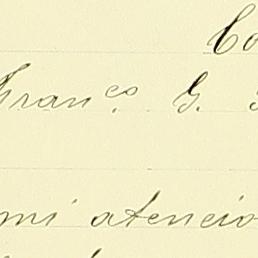 Co
Fran.co G.
mi atencio